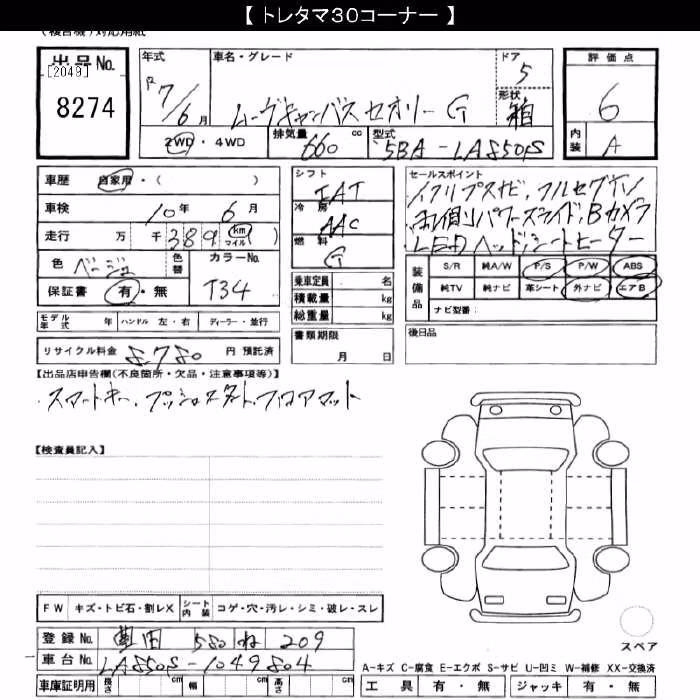 【 トレタマ30コーナー 】
(複合機)対応用紙
出品No.
[2049]
8274
年式 R7/6月
車名・グレード
ムーヴキャンバス セオリーG
ドア 5
形状 箱
評価点
6
内装 A
2WD・4WD
排気量 660 cc
型式 5BA-LA850S
車歴 自家用・( )
車検 10年 6月
走行 万 千 389 (km マイル)
色 ベージュ
色替
カラーNo. T34
保証書 有・無
シフト IAT
冷房 AAC
燃料 G
乗車定員 名
積載量 kg
総重量 kg
セールスポイント
左側パワースライド、Bカメラ
LEDヘッド、シートヒーター
装備品
S/R 純A/W P/S P/W ABS
純TV 純ナビ 革シート 外ナビ エアB
ナビ型番:
モデル年式 年 ハンドル 左・右 ディーラー・並行
書類期限
月 日
後日品
リサイクル料金 8,780 円 預託済
【出品店申告欄(不良箇所・欠品・注意事項等)】
・スマートキー、プッシュスタート、フロアマット
【検査員記入】
FW キズ・トビ石・割レX シート内装 コゲ・穴・汚レ・シミ・破レ・スレ
登録No. 豊田 580 ね 209
車台No. LA850S-1049804
車庫証明用 長さ cm 幅 cm 高さ cm
スペア
A-キズ C-腐食 E-エクボ S-サビ U-凹ミ W-補修 XX-交換済
工具 有・無 ジャッキ 有・無